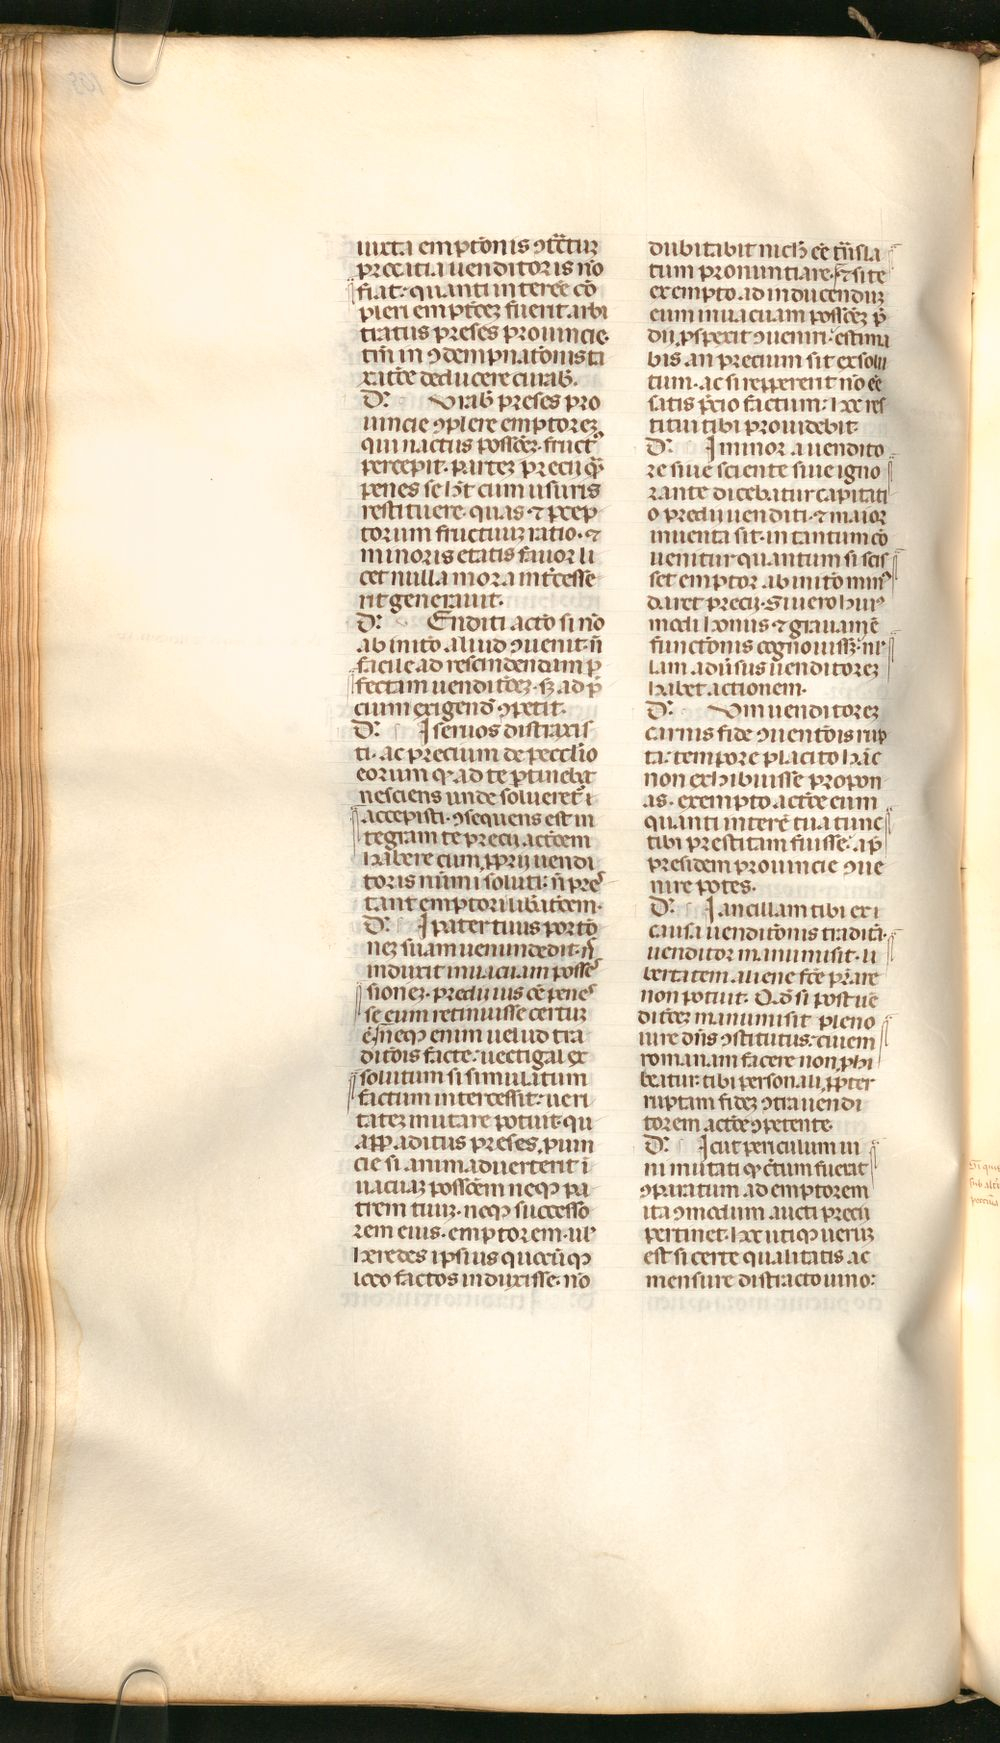 iuxta emptōnis ꝯtc̄tuꝫ
procacia uenditoris nō
fiat: quanti interēe cō
pleri emptōeꝫ fuerit arbi
tratus preses prouincie.
tm̄ in ꝯdempnatōnis ta
xatōe deducere curab̄.
D̄. Urab̄ preses pro
uincie ꝯplere emptoreꝫ
qui nactus possōeꝫ. fruct᷒
percepit. parteꝫ precij q̄ꝫ
penes se h̄t cum usuris
restituere. quas ⁊ ꝑcep
torum fructuuꝫ ratio. ⁊
minoris etatis fauor li
cet nulla mora int̄cesse
rit generauit.
D̄. Enditi actō si nō
ab initō aliud ꝯuenit. n̄
facile ad rescindendum ꝑ
fectam uenditōeꝫ. sꝫ ad p̄
cium exigend̄ ꝯpetit.
D̄. I seruos distraxis
ti. ac precium de peculio
eorum qd̄ ad te ꝑtinebat
nesciens unde solueret᷑ i
accepisti. ꝯsequens est in
tegram te precij actōem
habere cum ꝓprij uendi
toris nūmi soluti. n̄ pre᷒
tant emptori lib̄atōem.
D̄. I pater tuus portō
neꝫ suam uenundedit. n̄
induxit in uacuam posse᷒
sioneꝫ. predij ius ēe pene᷒
se eum retinuisse certuꝫ
ē. neqꝫ enim uelud tra
ditōis facte. uectigal ex
solutum si simulatum
factum intercessit. ueri
tateꝫ mutare potuit. qu
app̄ aditus preses ꝓuin
cie si animaduerterit i
uacuaꝫ possōem neqꝫ pa
trem tuuꝫ. neqꝫ successo
rem eius. emptorem. ul̄
heredes ipsius quecūqꝫ
loco factos induxisse. nō
dubitabit nich̄ ēe tn̄sla
tum pronuntiare. ⁊ site
ex empto ad inducenduꝫ
eum in uacuam possōeꝫ p̄
dij ꝑspexit ꝯueniri. estima
bit an precium sit exsolu
tum. ac si repperierit nō ēe
satis p̄cio factum: hoc res
titui tibi prouidebit.
D̄. I minor a uendito
re siue sciente siue igno
rante dicebatur capitati
o predij uenditi. ⁊ maior
inuenta sit. in tantum cō
uenitur quantum si scis
set emptor ab initō min᷒
daret precij. Si uero hui᷒
modi honus ⁊ grauamē
functōnis cognouissꝫ. nl̄
lam adūsus uenditoreꝫ
habet actionem.
D̄. Um uenditoreꝫ
carnis fide ꝯuentōis rup
ta: tempore placito hāc
non exhibuisse propon
as. ex empto actōe eum
quanti interē tua tunc
tibi prestitam fuisse. ap̄
presidem prouincie ꝯue
nire potes.
D̄. I ancillam tibi ex i
causa uenditōnis traditā.
uenditor manumisit. li
bertatem aliene fc̄e p̄stare
non potuit. Q.d̄ si post ue
ditōeꝫ manumisit pleno
iure dn̄s ꝯstitutus: ciuem
romanam facere non ꝓhi
beatur: tibi personali ꝓpter
ruptam fideꝫ ꝯtra uendi
torem actōe ꝯpetente.
D̄. Icut periculum ui
ni mutati qd̄ c̄tum fuerat
ꝯparatum ad emptorem
ita ꝯmodum aucti precij
pertinet. hoc utiqꝫ ueruꝫ
est si certe qualitatis ac
mensure distracto uino:
Si quis
sub alt̄i